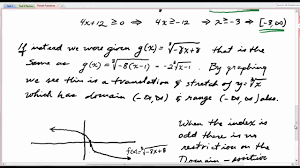 4x+12 ≥ 0 ⇒ 4x ≥ -12 ⇒ x ≥ -3 ⇒ [-3,∞)
If instead we were given g(x) = ∛-8x+8 that is the
same as g(x) = ∛-8(x-1) = -2∛x-1. By graphing
we see this is a translation & stretch of y=∛x
which has domain (-∞,∞) & range (-∞,∞) also.
When the index is
odd there is no
restriction on the
Domain – positive
f(x)=∛-8x+8